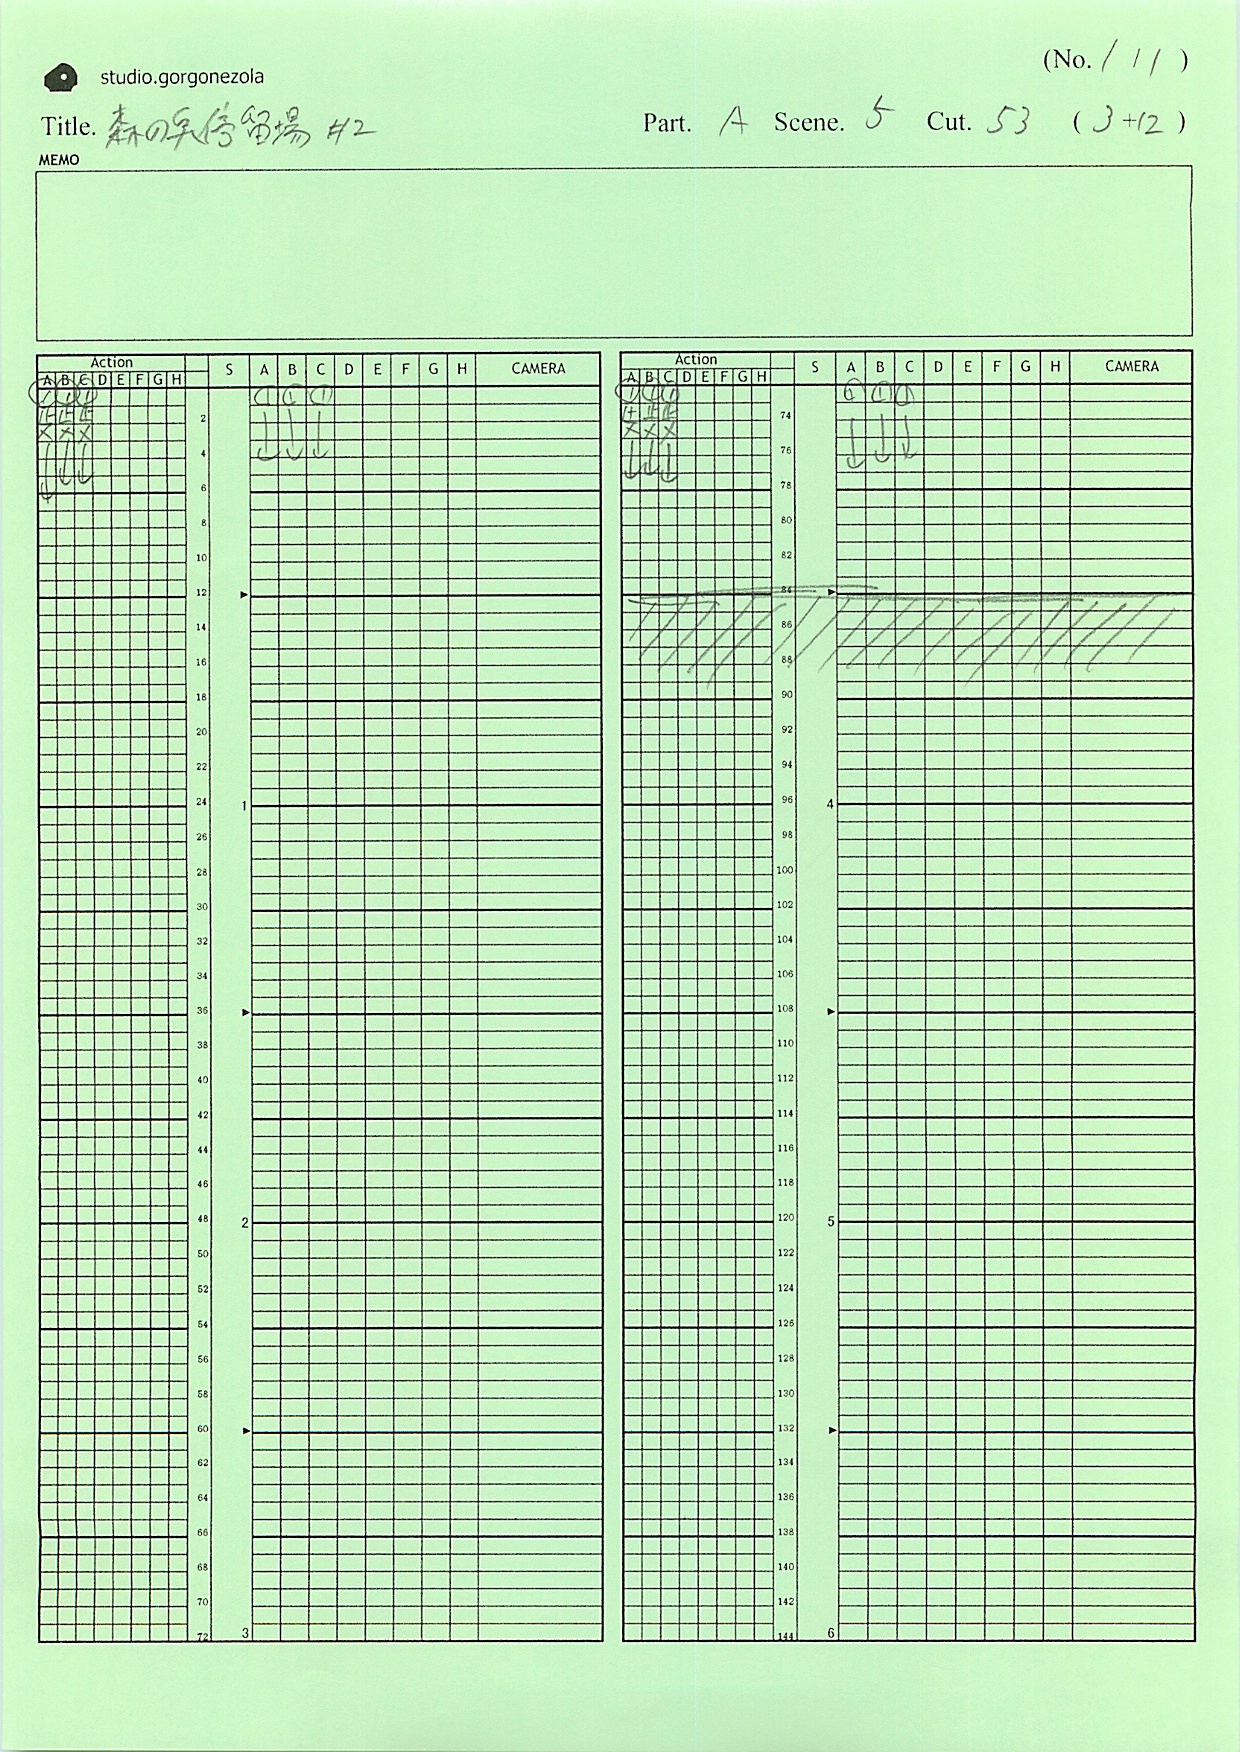 (No. / 1/1 )
studio.gorgonezola
Title. 森の 停留場 #2 Part. A Scene. 5 Cut. 53 ( 3+12 )
MEMO
Action
S A B C D E F G H CAMERA
A B C D E F G H
① ① ①
止 止 止
× × ×
① ① ①
2
4
6
8
10
12
14
16
18
20
22
24 1
26
28
30
32
34
36
38
40
42
44
46
48 2
50
52
54
56
58
60
62
64
66
68
70
72 3
Action
S A B C D E F G H CAMERA
A B C D E F G H
① ① ①
止 止 止
× × ×
① ① ①
74
76
78
80
82
84
86
88
90
92
94
96 4
98
100
102
104
106
108
110
112
114
116
118
120 5
122
124
126
128
130
132
134
136
138
140
142
144 6